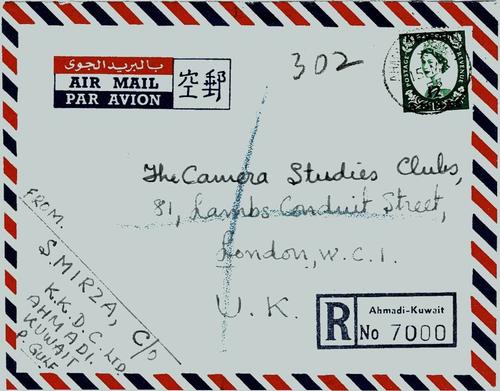 302
بالبريد الجوى
AIR MAIL
PAR AVION
空郵
POSTAGE
REVENUE
The Camera Studies Clubs,
81, Lambs Conduit Street,
London, W.C.1.
U.K.
FROM.
S. MIRZA, C/O
K.K.D.C. LTD.
AHMADI.
KUWAIT
P. GULF
R
Ahmadi-Kuwait
No 7000